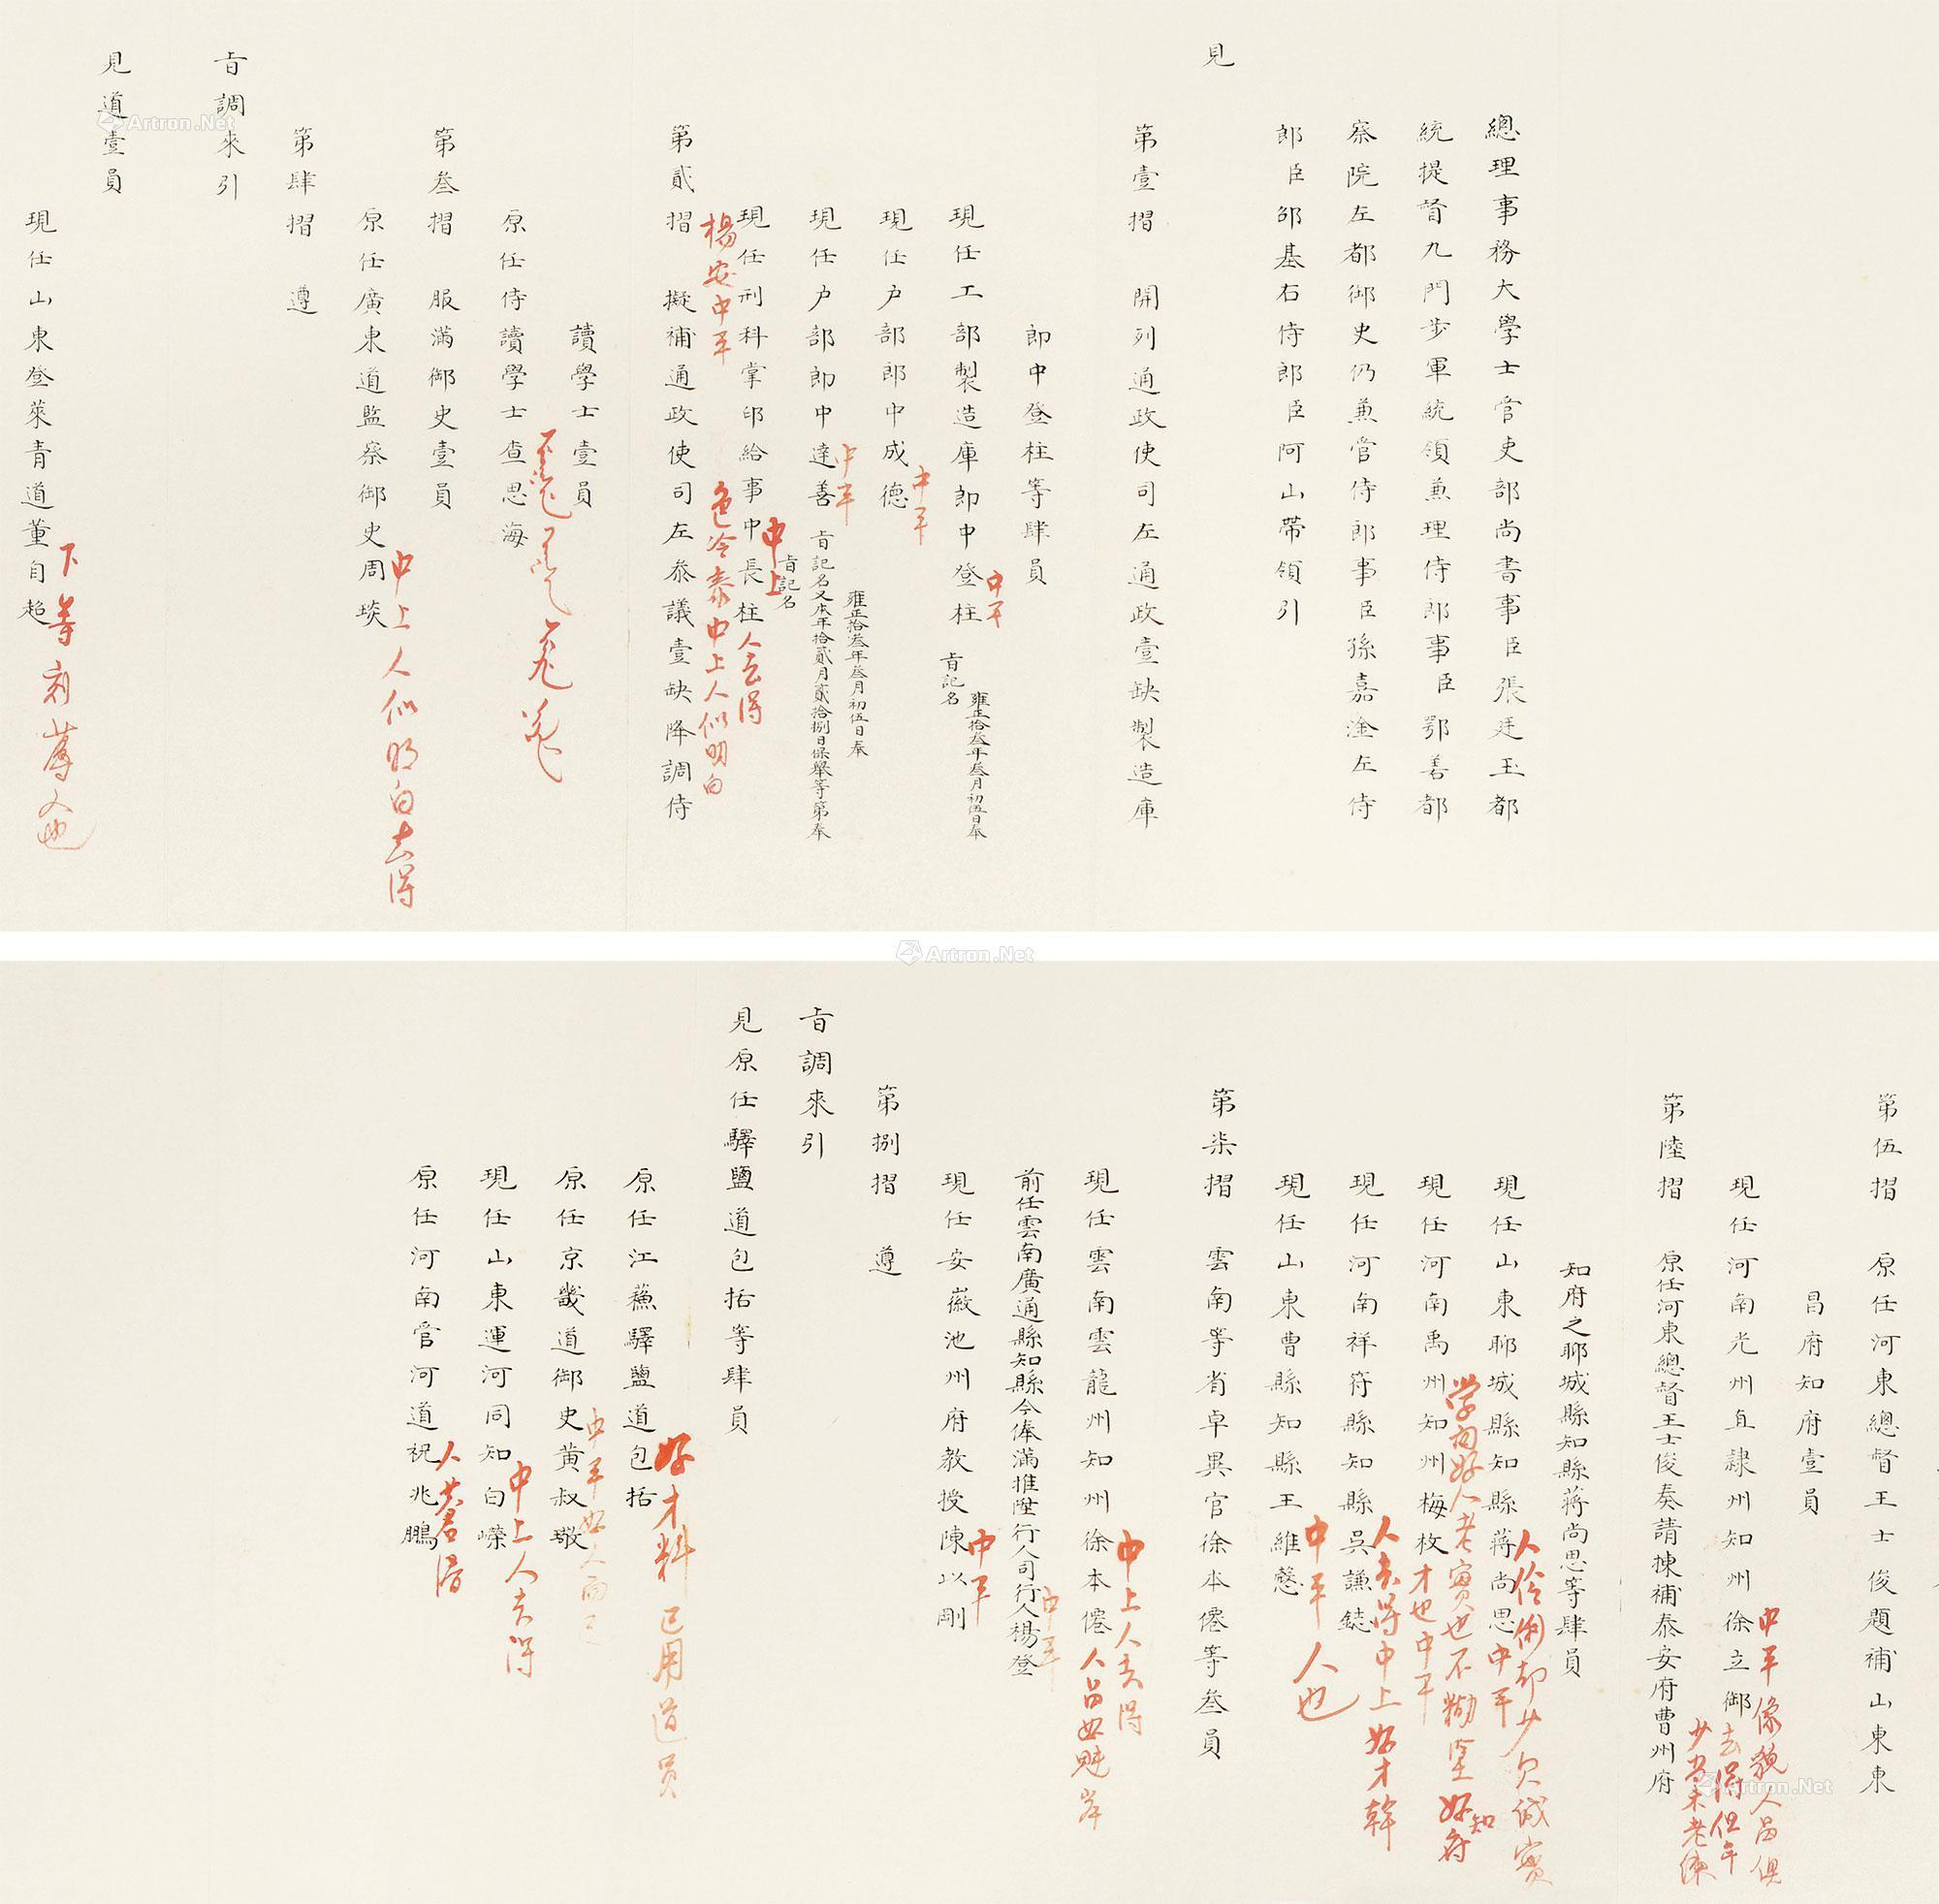 總理事務大學士管吏部尚書事臣張廷玉都
統提督九門步軍統領兼理侍郎事臣鄂善都
察院左都御史仍兼管侍郎事臣孫嘉淦左侍
郎臣邵基右侍郎臣阿山帶領引
見
第壹摺 開列通政使司左通政壹缺製造庫
郎中登柱等肆員
現任工部製造庫郎中登柱
雍正拾叁年叁月初伍日奉
旨記名
中平
現任户部郎中成德
中平
現任户部郎中達善
雍正拾叁年叁月初伍日奉
旨記名又本年拾貳月貳拾捌日保舉等第奉
旨記名
中平
現任刑科掌印給事中長柱
中上
人去得
楊安中平
色冷泰中上人似明白
第貳摺 擬補通政使司左叅議壹缺降調侍
讀學士壹員
原任侍讀學士查思海
第叁摺 服滿御史壹員
原任廣東道監察御史周琰
中上人似明白去得
第肆摺 遵
旨調來引
見道壹員
現任山東登萊青道董自超
下等刻薄人也
第伍摺 原任河東總督王士俊題補山東東
昌府知府壹員
現任河南光州直隸州知州徐立御
中平像貌人品俱
去得但年
少當未老練
第陸摺 原任河東總督王士俊奏請揀補泰安府曹州府
知府之聊城縣知縣蔣尚思等肆員
現任山東聊城縣知縣蔣尚思
人伶俐却少欠誠實
中平
現任河南禹州知州梅枚
学問好人老實也不糊塗好知府
才也中平
現任河南祥符縣知縣吳謙鋕
人去得中上好才幹
現任山東曹縣知縣王維慤
中平人也
第柒摺 雲南等省卓異官徐本僊等叁員
現任雲南雲龍州知州徐本僊
中上人去得
人品好魁岸
前任雲南廣通縣知縣今俸滿推陞行人司行人楊登
中平
現任安徽池州府教授陳以剛
中平
第捌摺 遵
旨調來引
見原任驛鹽道包括等肆員
原任江蘇驛鹽道包括
好才料已用道員
原任京畿道御史黃叔敬
中平好人而已
現任山東運河同知白嶸
中上人去得
原任河南管河道祝兆鵬
人去得